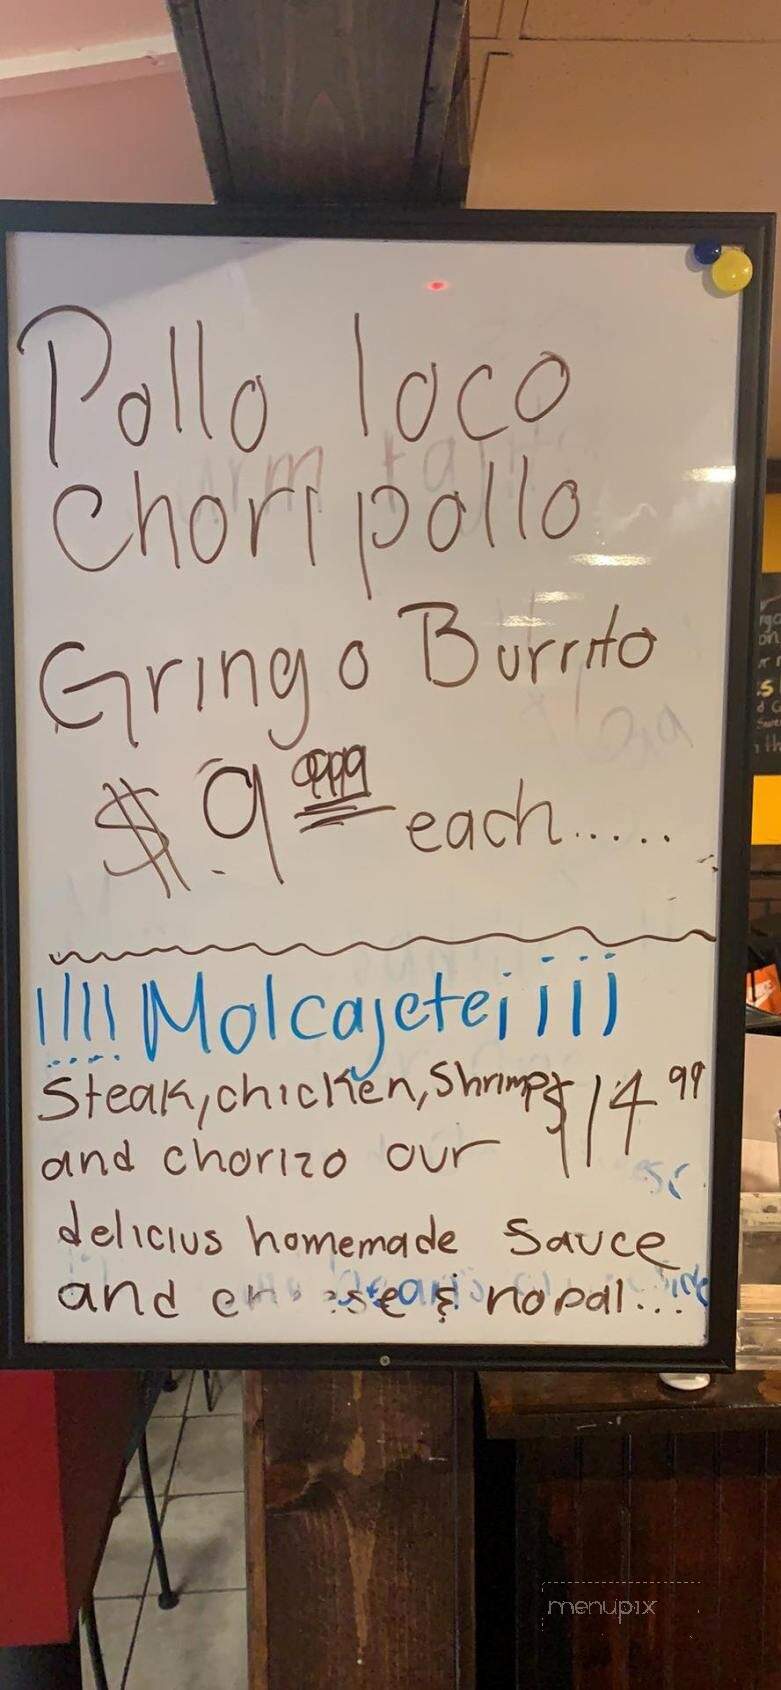 Pollo loco
Chori pollo
Gringo Burrito
$.9 99 each.....
!!!! Molcajete ¡¡¡¡
Steak, chicken, Shrimp $14.99
and chorizo our
delicius homemade sauce
and cheese & nopal...
menupix